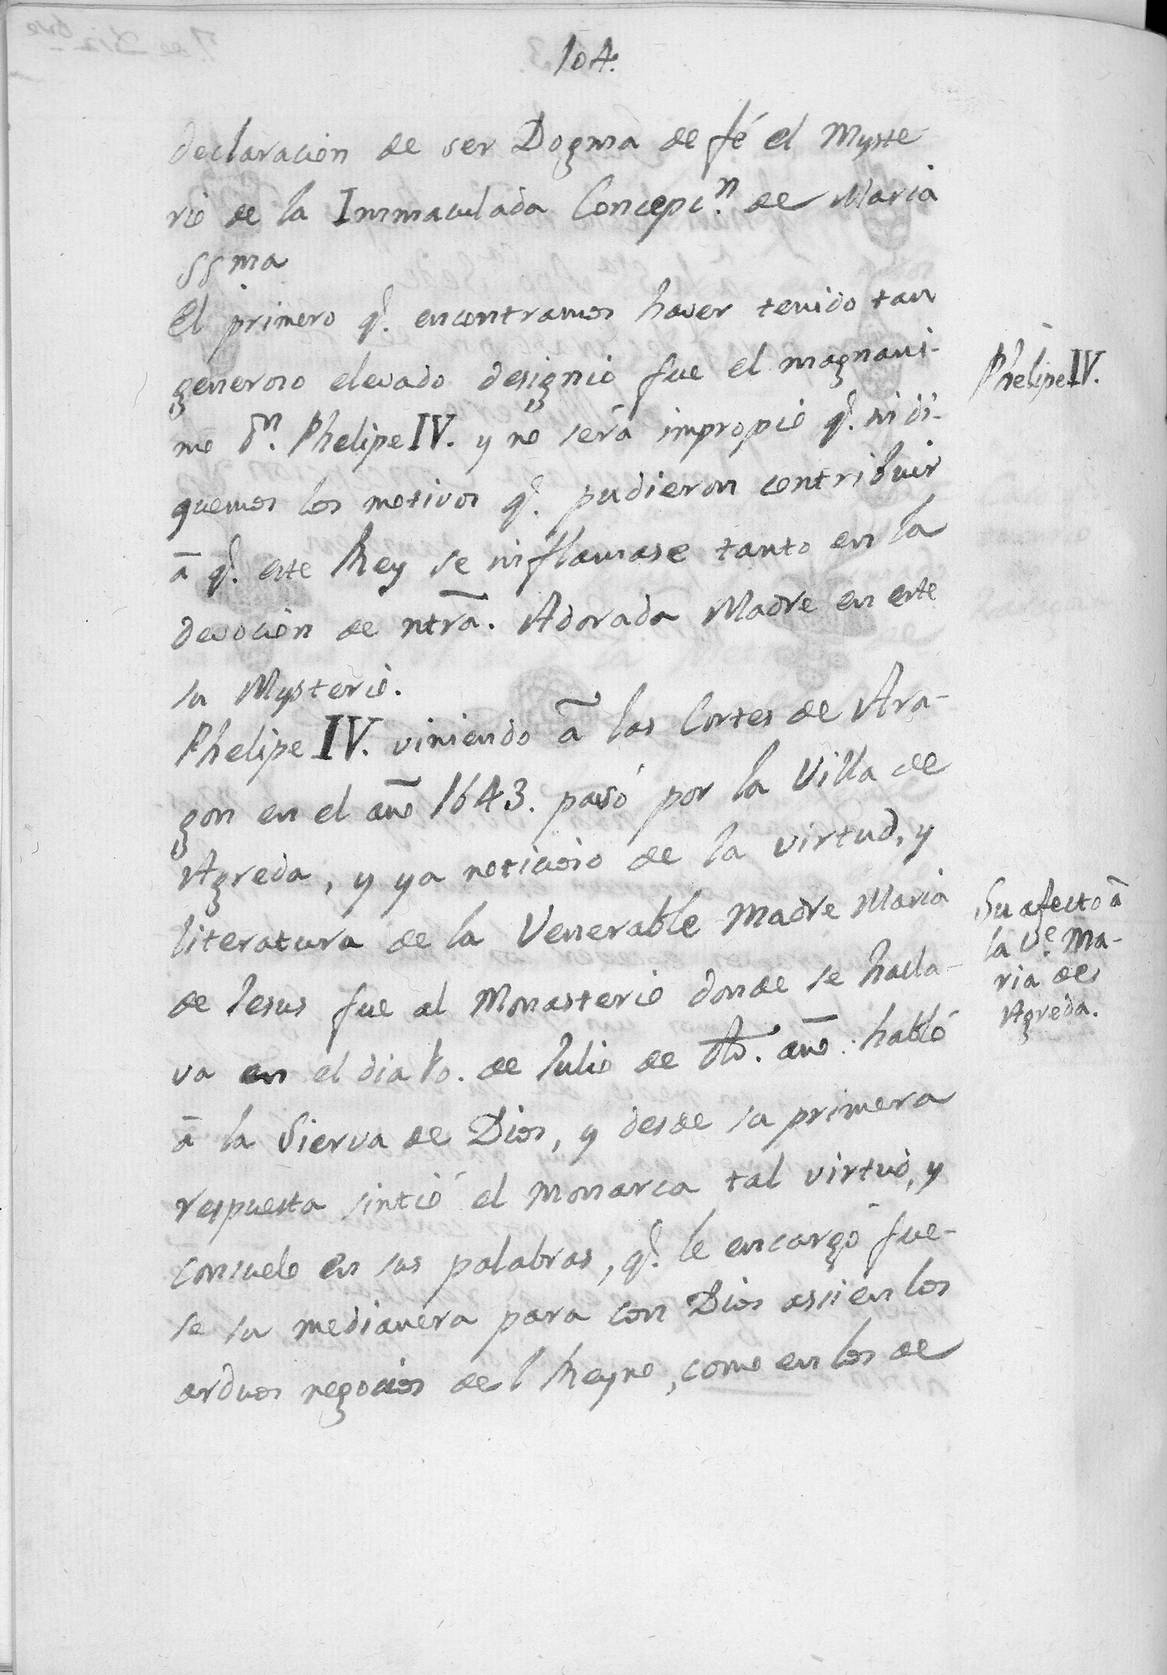 104.
declaracion de ser Dogma de fé el Myste
rio de la Immaculada Concepc.n de Maria
SSma
El primero q. encontramos haver tenido tan
generoso elevado designio fue el magnani-
mo Dn. Phelipe IV. y no será impropio q. indi-
quemos los motivos q. pudieron contribuir
â q. este Rey se inflamase tanto en la
devocion de ntra. Adorada Madre en este
su Mysterio.
Phelipe IV.
Phelipe IV. viniendo â las Cortes de Ara-
gon en el año 1643. pasó por la Villa de
Agreda, y ya noticioso de la virtud, y
literatura de la Venerable Madre Maria
de Jesus fue al Monasterio donde se halla-
va en el dia 10. de Julio de dho. año: habló
â la Sierva de Dios, y desde su primera
respuesta sintió el Monarca tal virtud, y
consuelo en sus palabras, q. le encargó fue-
se su medianera para con Dios assi en los
arduos negocios del Reyno, como en los de
Su afecto â
la Ve. Ma-
ria de
Agreda.